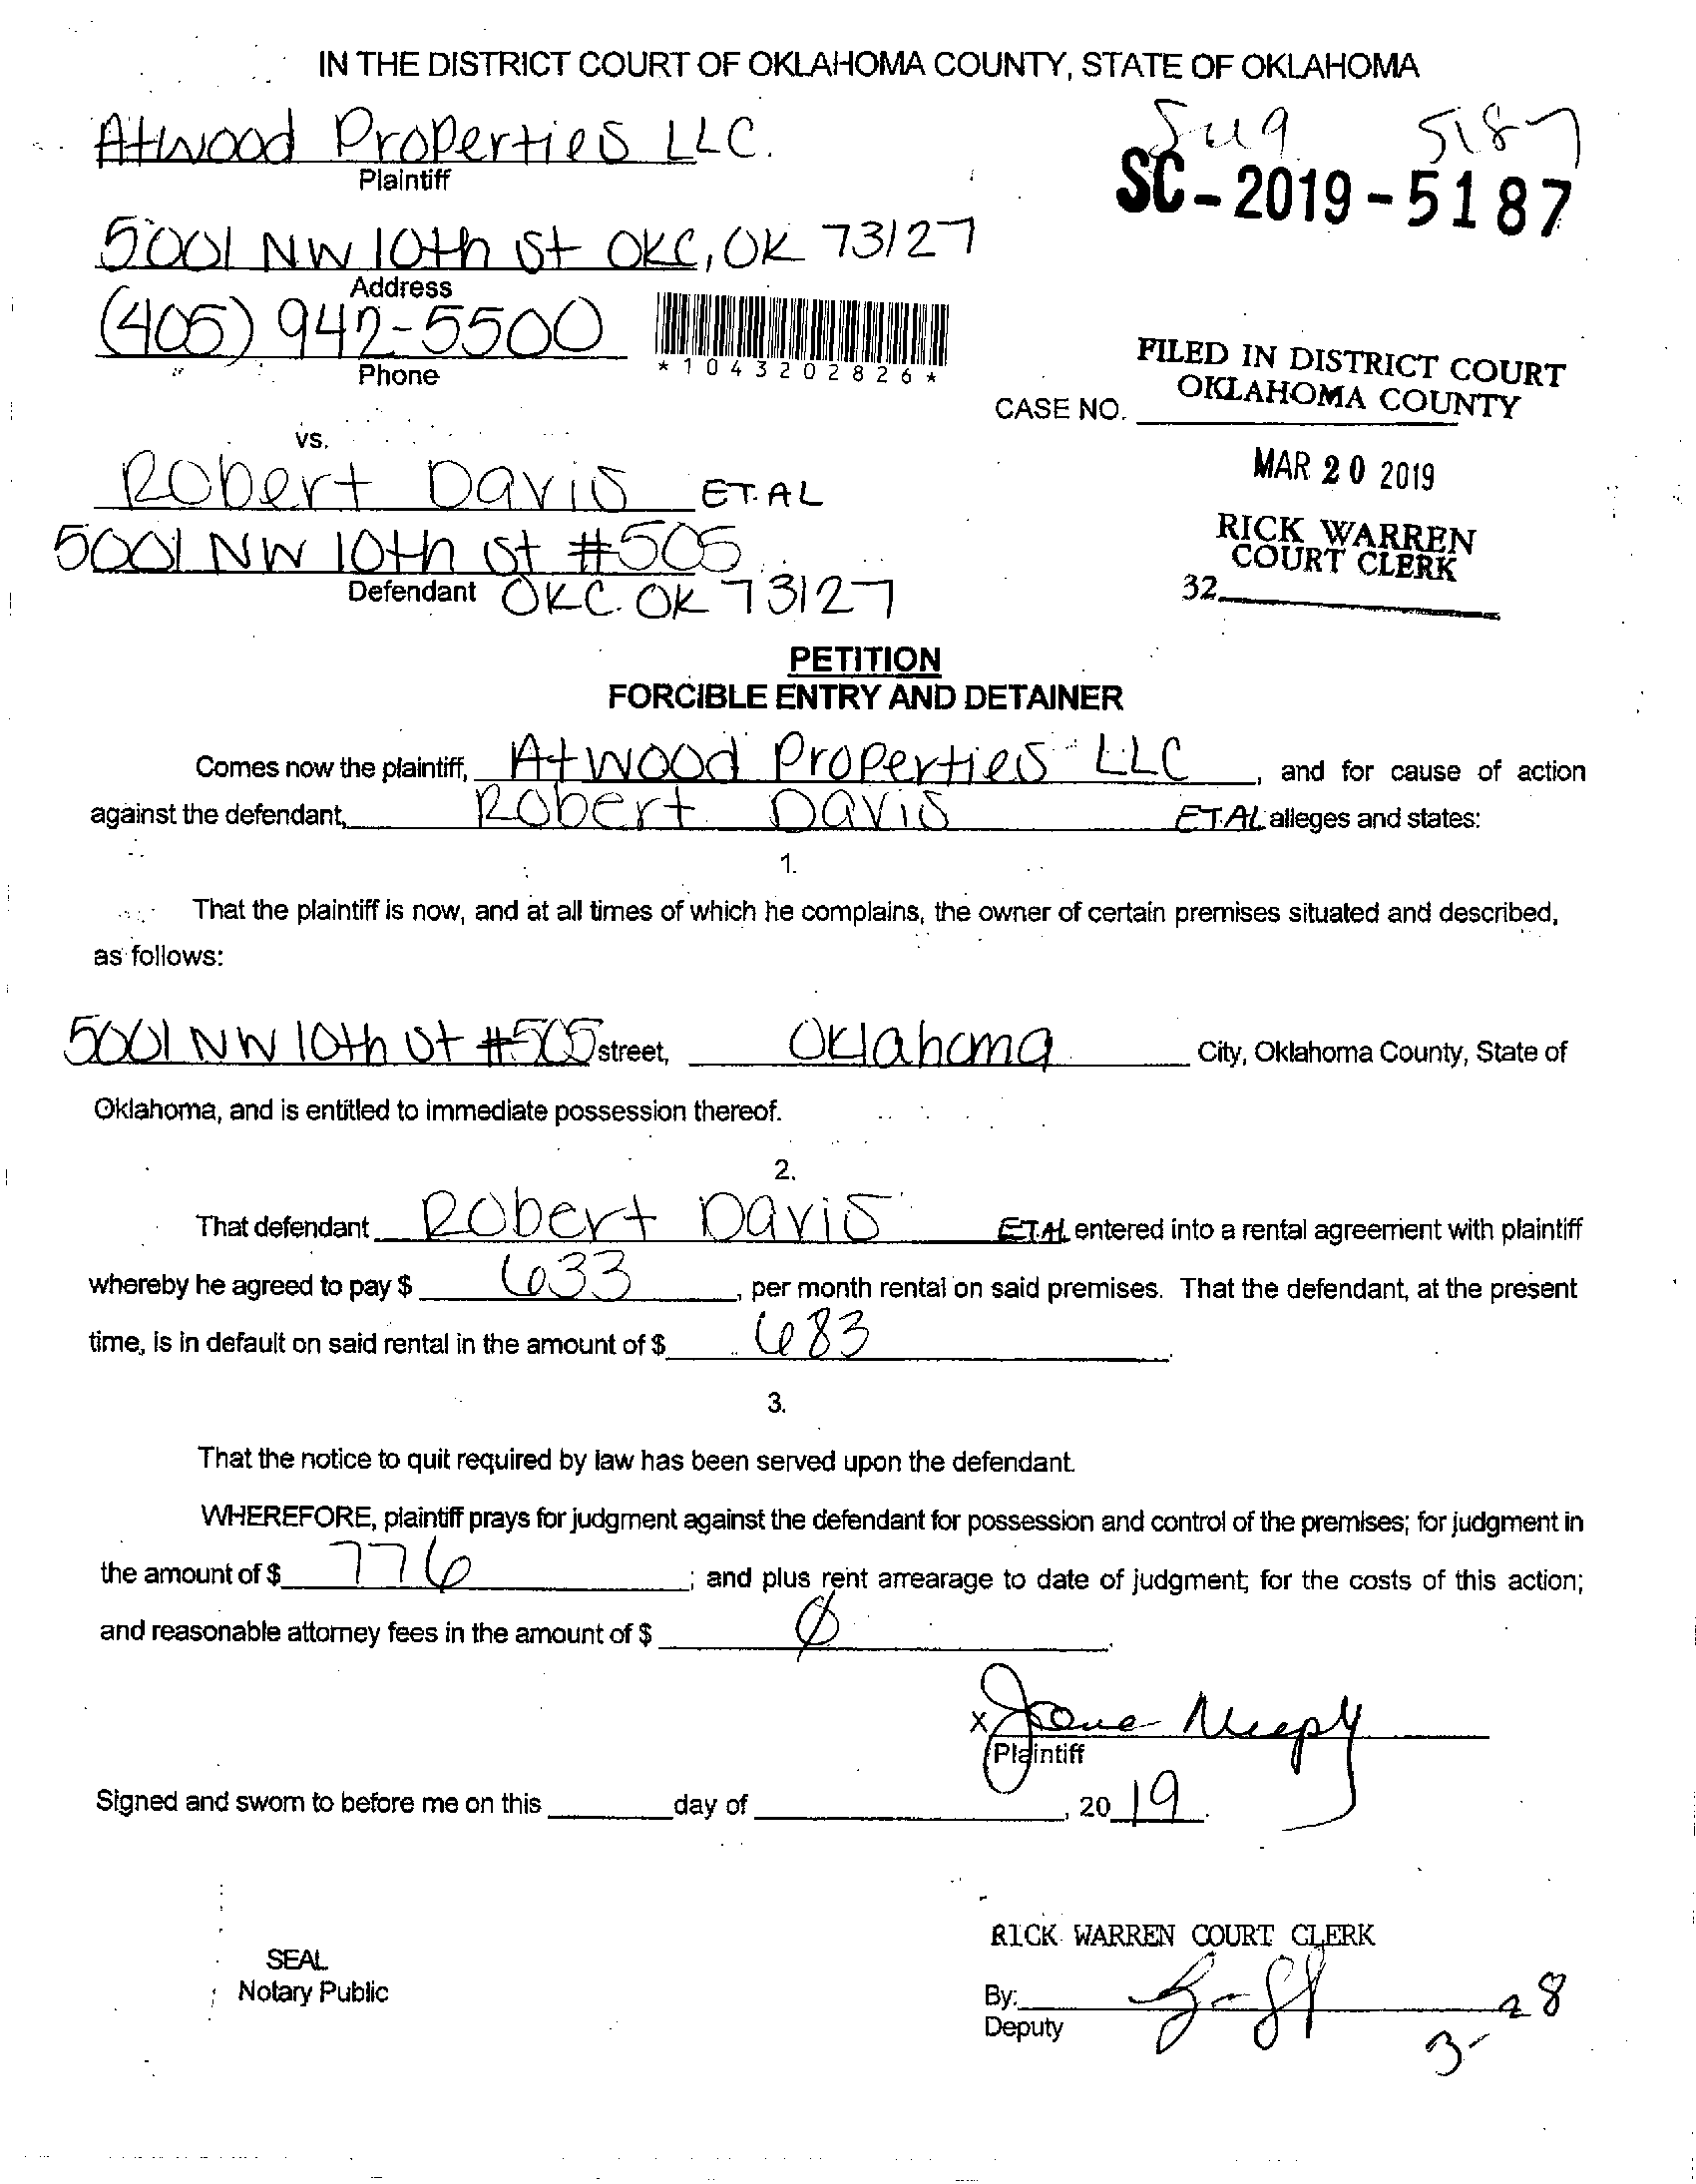 IN THE DISTRICT COURT OF OKLAHOMA COUNTY, STATE OF OKLAHOMA
Atwood Properties LLC.
Plaintiff
5187
SC-2019-5187
5001 NW 10th St OKC, OK 73127
Address
(405) 942-5500
Phone
*1043202826*
FILED IN DISTRICT COURT
OKLAHOMA COUNTY
CASE NO.
MAR 20 2019
vs.
Robert Davis ET.AL
RICK WARREN
COURT CLERK
32
5001 NW 10th St #505
Defendant OKC. OK 73127
PETITION
FORCIBLE ENTRY AND DETAINER
Comes now the plaintiff, Atwood Properties LLC, and for cause of action
against the defendant, Robert Davis ET.AL alleges and states:
1.
That the plaintiff is now, and at all times of which he complains, the owner of certain premises situated and described,
as follows:
5001 NW 10th St #505 street, Oklahoma City, Oklahoma County, State of
Oklahoma, and is entitled to immediate possession thereof.
2.
That defendant Robert Davis ET.AL entered into a rental agreement with plaintiff
whereby he agreed to pay $ 633, per month rental on said premises. That the defendant, at the present
time, is in default on said rental in the amount of $ 683.
3.
That the notice to quit required by law has been served upon the defendant.
WHEREFORE, plaintiff prays for judgment against the defendant for possession and control of the premises; for judgment in
the amount of $ 776; and plus rent arrearage to date of judgment; for the costs of this action;
and reasonable attorney fees in the amount of $ Ø.
X
Plaintiff
Signed and sworn to before me on this day of , 20 19.
RICK WARREN COURT CLERK
SEAL
Notary Public
By:
Deputy
3-28